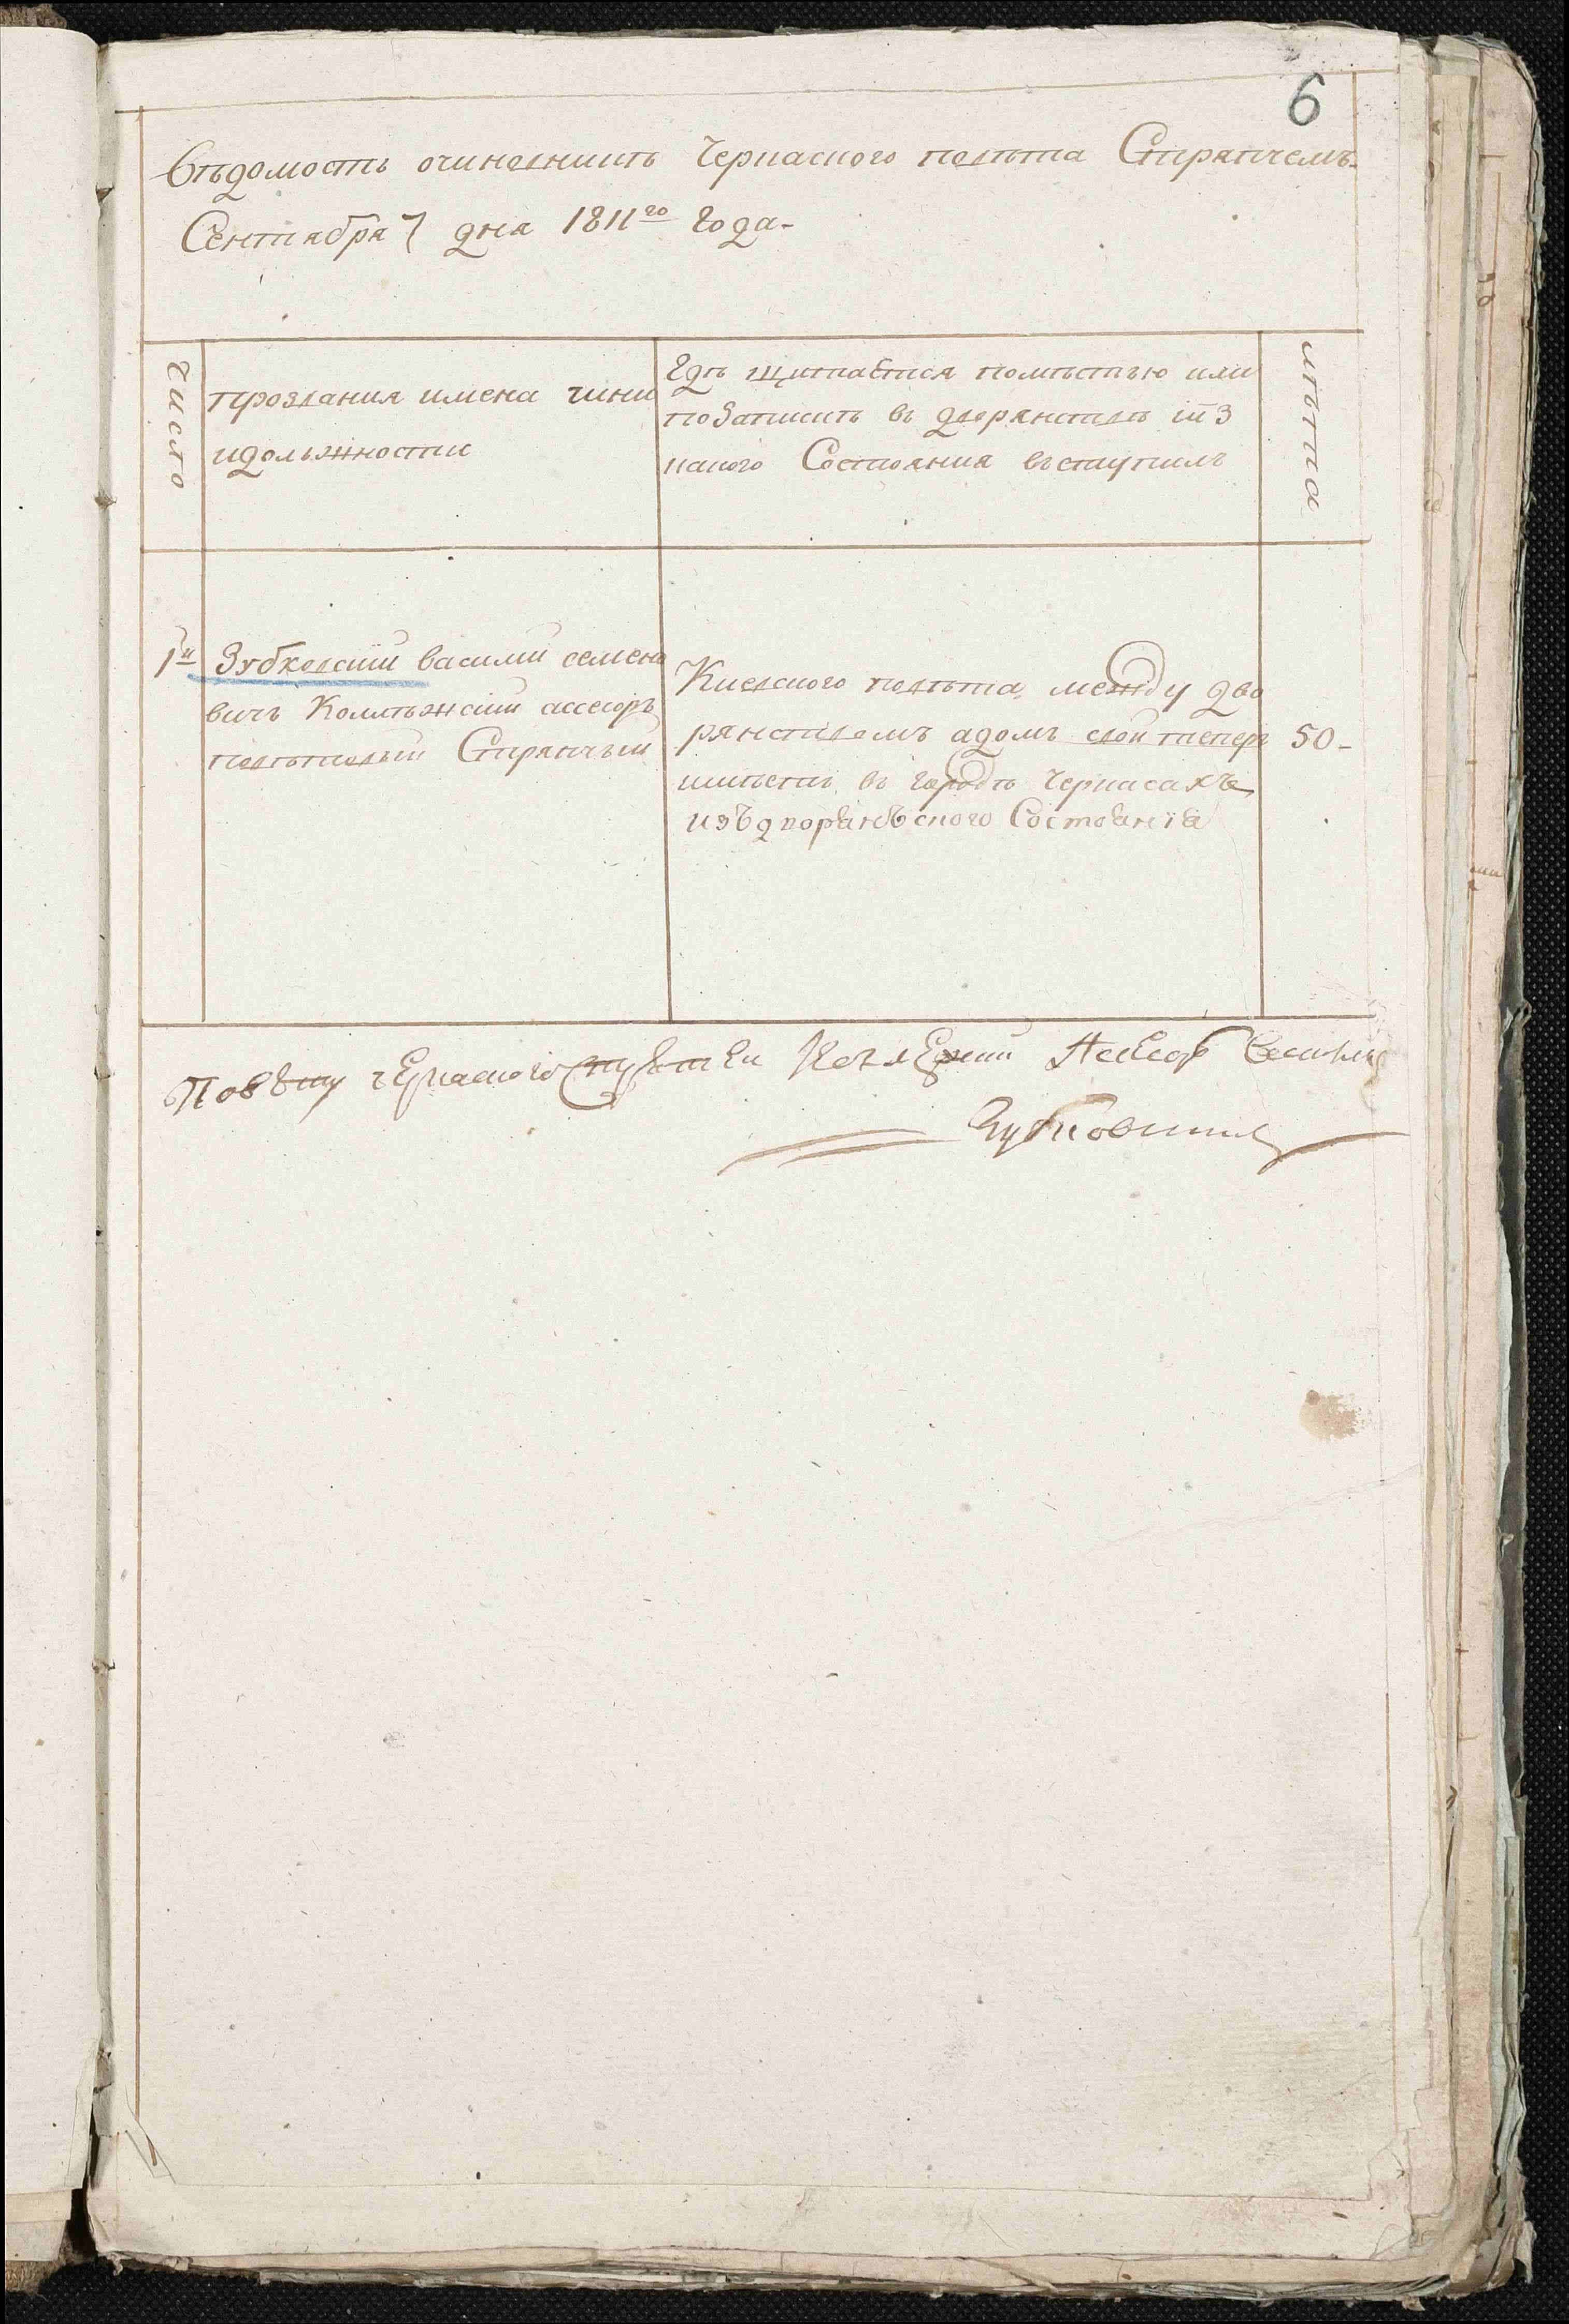 6
Вѣдомость очиновникѣ Черкаского повѣта Стряпчемъ.
Сентября 7 дня 1811го Года-
число
прозвания имена чини
идолжности
Гдѣ щитается помѣстью или
позапискѣ въ дворянствѣ ииз
какого Состояния въступилъ
лѣта
1й Зубковский василий семено
вичъ Коллѣжский ассесоръ
повѣтовый Стряпчый
Киевского повѣта между дво
рянствомъ адомъ свой теперъ
имѣетъ въ городѣ Черкасахъ
изъдворянъского Состоянія
50-
Повѣту черкаского Стряпчей Асесор Василий
Зубковский